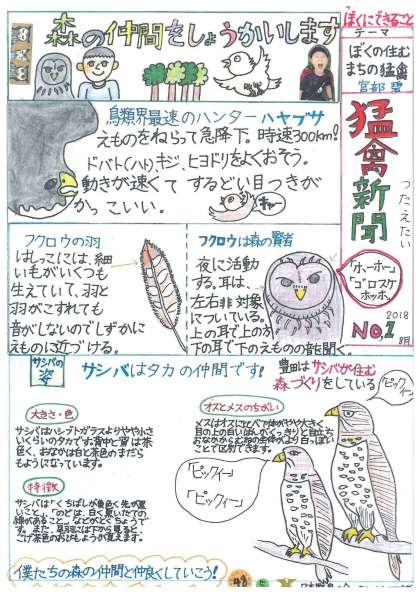 森の仲間をしょうかいします
ぼくにできること
テーマ
ぼくの住む
まちの猛禽
宮部 碧
猛禽新聞
つたえたい
2018
No,1
8月
鳥類界最速のハンターハヤブサ
えものをねらって急降下。時速300km!
ドバト(ハト)、キジ、ヒヨドリをよくおそう。
動きが速くてするどい目つきが
かっこいい。
フクロウの羽
はしっこには、細
い毛がいくつも
生えていて、羽と
羽がこすれても
音がしないのでしずかに
えものに近づける。
フクロウは森の賢者
夜に活動
する。耳は、
左右非対象
についている。
上の耳で上の音、
下の耳で下のえものの音を聞く。
「ホーホー」
「ゴロスケ
ホッホ」
サシバの
姿
サシバはタカの仲間です!
豊田はサシバが住む
森づくりをしている
「ピックイー」
大きさ・色
サシバはハシブトガラスよりやや小さ
いくらいのタカです。背中と肩は茶
色く、おなかは白と茶色のまだら
もようになっています。
オスとメスのちがい
メスはオスにくらべて体がやや大きく、
目の上の白い
「ピックイー」
「ピックイー」
特徴
サシバは「くちばしが黄色く先が黒
いこと」、「のどは、白く黒いたての
線があること」などがとくちょうで
す。また、
こげ茶色のおびもようが見えます。
僕たちの森の仲間と仲良くしていこう!